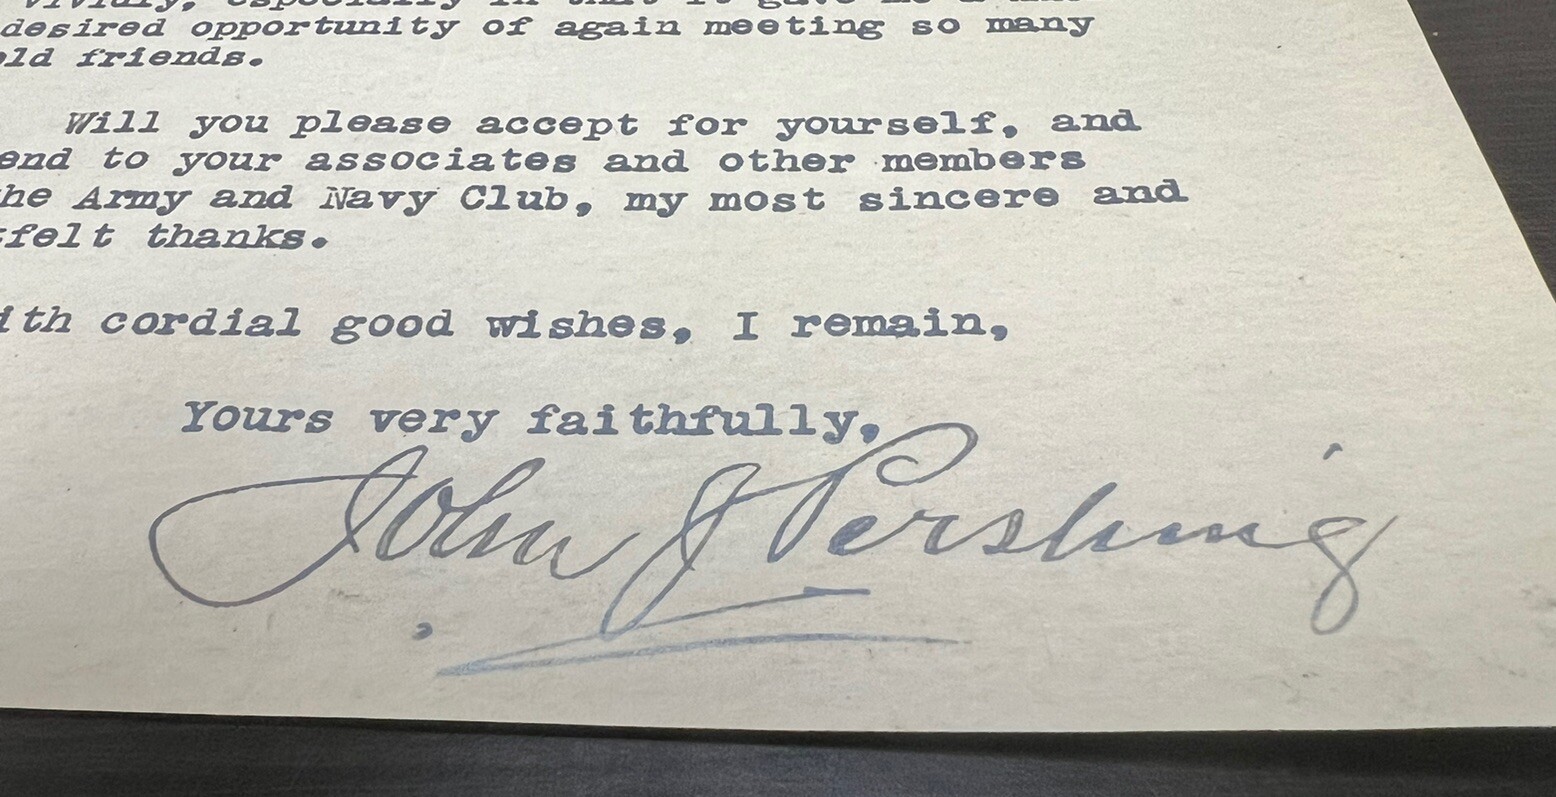 desired opportunity of again meeting so many
old friends.
Will you please accept for yourself, and
end to your associates and other members
the Army and Navy Club, my most sincere and
tfelt thanks.
ith cordial good wishes, I remain,
Yours very faithfully,
John J Pershing